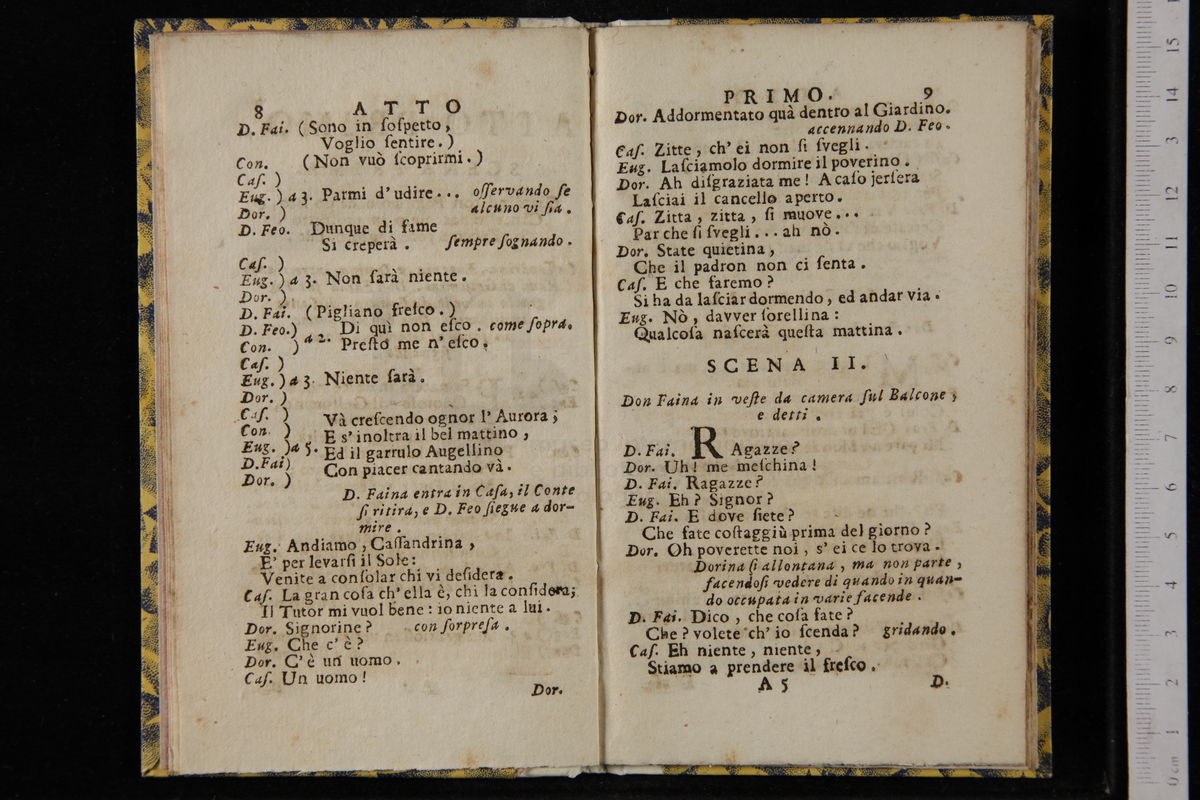 8 ATTO
D. Fai. (Sono in ſoſpetto,
Voglio ſentire.)
Con. (Non vuò ſcoprirmi.)
Caſ. )
Eug. ) a 3. Parmi d'udire... oſſervando ſe
Dor. ) alcuno vi ſia.
D. Feo. Dunque di fame
Si creperà. ſempre ſognando.
Caſ. )
Eug. ) a 3. Non ſarà niente.
Dor. )
D. Fai. (Pigliano freſco.)
D. Feo.) a 2. Di quì non eſco. come ſopra.
Con. ) Preſto me n'eſco.
Caſ. )
Eug. ) a 3. Niente ſarà.
Dor. )
Caſ. ) Và creſcendo ognor l'Aurora;
Con. ) E s'inoltra il bel mattino,
Eug. )a 5. Ed il garrulo Augellino
D.Fai) Con piacer cantando và.
Dor. )
D. Faina entra in Caſa, il Conte
ſi ritira, e D. Feo ſiegue a dor-
mire.
Eug. Andiamo, Caſſandrina,
E' per levarſi il Sole:
Venite a conſolar chi vi deſidera.
Caſ. La gran coſa ch'ella è, chi la conſidera;
Il Tutor mi vuol bene: io niente a lui.
Dor. Signorine? con ſorpreſa.
Eug. Che c'è?
Dor. C'è un uomo.
Caſ. Un uomo!
Dor.
PRIMO. 9
Dor. Addormentato quà dentro al Giardino.
accennando D. Feo.
Caſ. Zitte, ch'ei non ſi ſvegli.
Eug. Laſciamolo dormire il poverino.
Dor. Ah diſgraziata me! A caſo jerſera
Laſciai il cancello aperto.
Caſ. Zitta, zitta, ſi muove...
Par che ſi ſvegli... ah nò.
Dor. State quietina,
Che il padron non ci ſenta.
Caſ. E che faremo?
Si ha da laſciar dormendo, ed andar via.
Eug. Nò, davver ſorellina:
Qualcoſa naſcerà queſta mattina.
SCENA II.
Don Faina in veſte da camera ſul Balcone,
e detti.
D. Fai. RAgazze?
Dor. Uh! me meſchina!
D. Fai. Ragazze?
Eug. Eh? Signor?
D. Fai. E dove ſiete?
Che fate coſtaggiù prima del giorno?
Dor. Oh poverette noi, s'ei ce lo trova.
Dorina ſi allontana, ma non parte,
facendoſi vedere di quando in quan-
do occupata in varie facende.
D. Fai. Dico, che coſa fate?
Che? volete ch'io ſcenda? gridando.
Caſ. Eh niente, niente,
Stiamo a prendere il freſco.
A 5 D.
15
14
13
12
11
10
9
8
7
6
5
4
3
2
1
0 cm